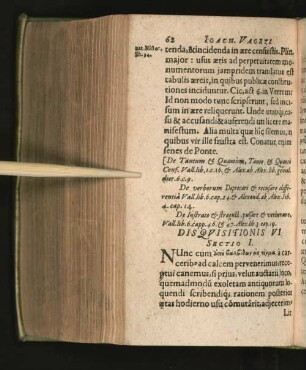 62 IOACH. VAGETI
tenda, & incidenda in ære censuistis. Plin.
major: usus æris ad perpetuitatem mo-
numentorum jampridem translatus est
tabulis æreis, in quibus publicæ constitu-
tiones inciduntur. Cic. act 6. in Verrem
Id non modo tunc scripserunt, sed inci-
sum in ære reliquerunt. Unde utriusq;
& accusandi & auferendi ut licet ma-
nifestum. Alia multa quæ hîc
vir ille frustra est. Conatur,
senex de Ponte.
[De Tantum & Quantum, Tanto & Quanto
Conf. Vall. lib. 2. c. 16. & Alex. ab Alex. lib. genial.
dier. 6. c. 9.
De verborum Deprecari & recusare diffe-
rentiâ Vall. lib. 6. cap. 24. & Alexand. ab Alex. lib.
4. cap. 14.
De Instrato &
Vall. lib. 6. cap. 46. & 47. Alex. lib. 3 cap. 19.
DISQVISITIONIS VI
SECTIO I.
NUnc cum
ad calcem pervenerimus, recep-
tui canemus, si prius, velut auctarii loco,
quemadmodũ exoletam antiquorum lo-
quendi scribendiq; rationem posterior
ætas hodierno usu cõmutârit; adjecerim.
Lit